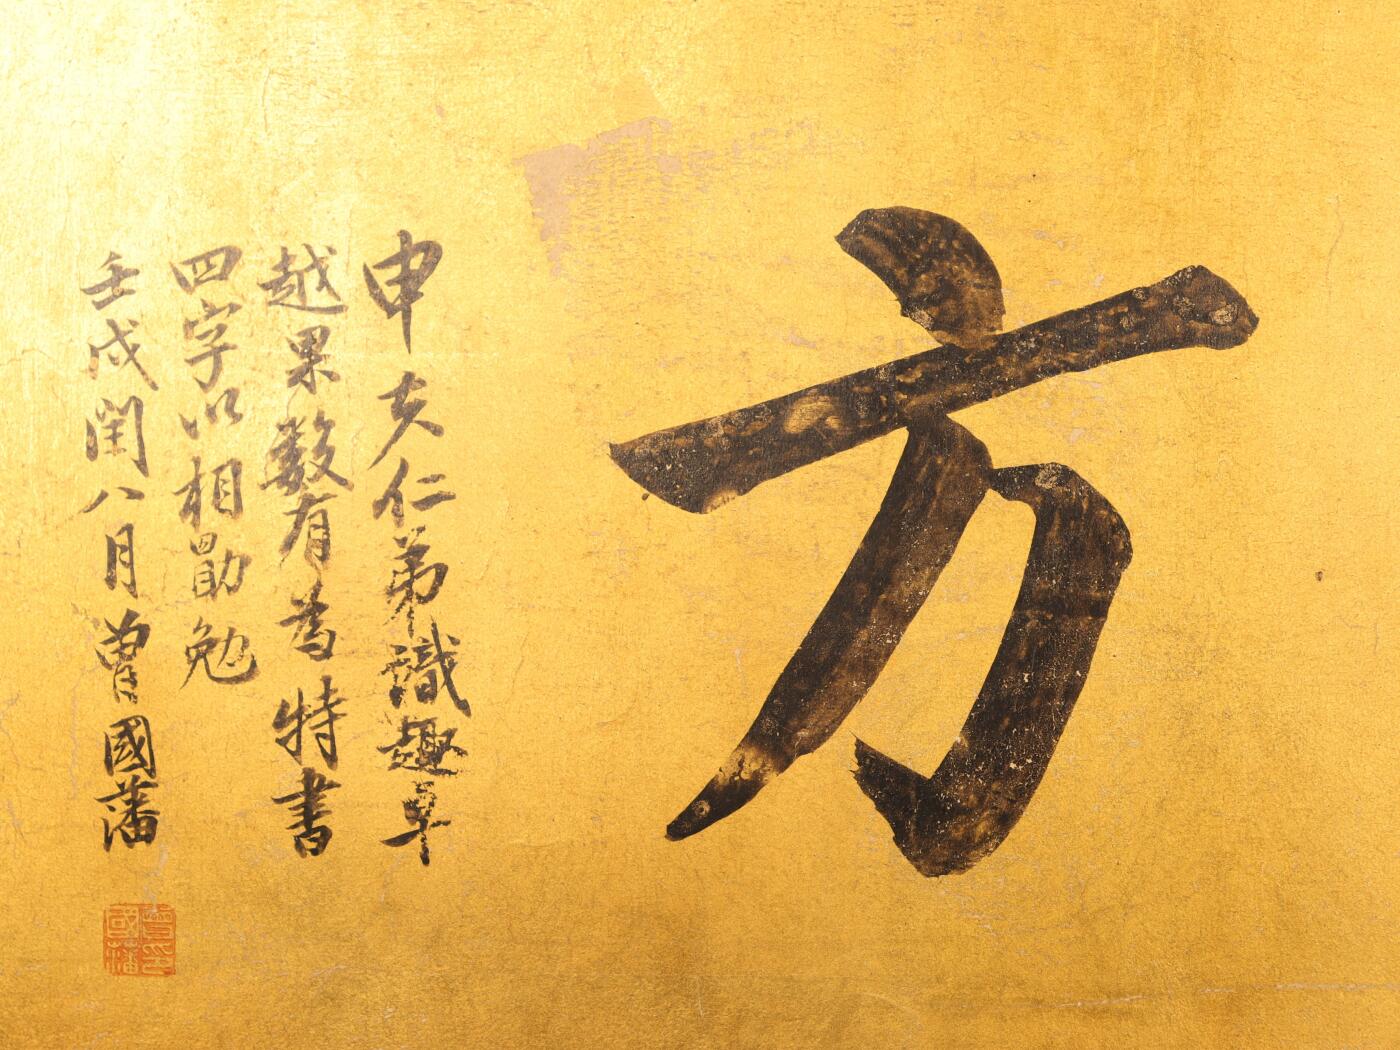 方
申夫仁弟識趣卓
越果毅有為特書
四字以相勖勉
壬戌閏八月曾國藩
曾國藩印